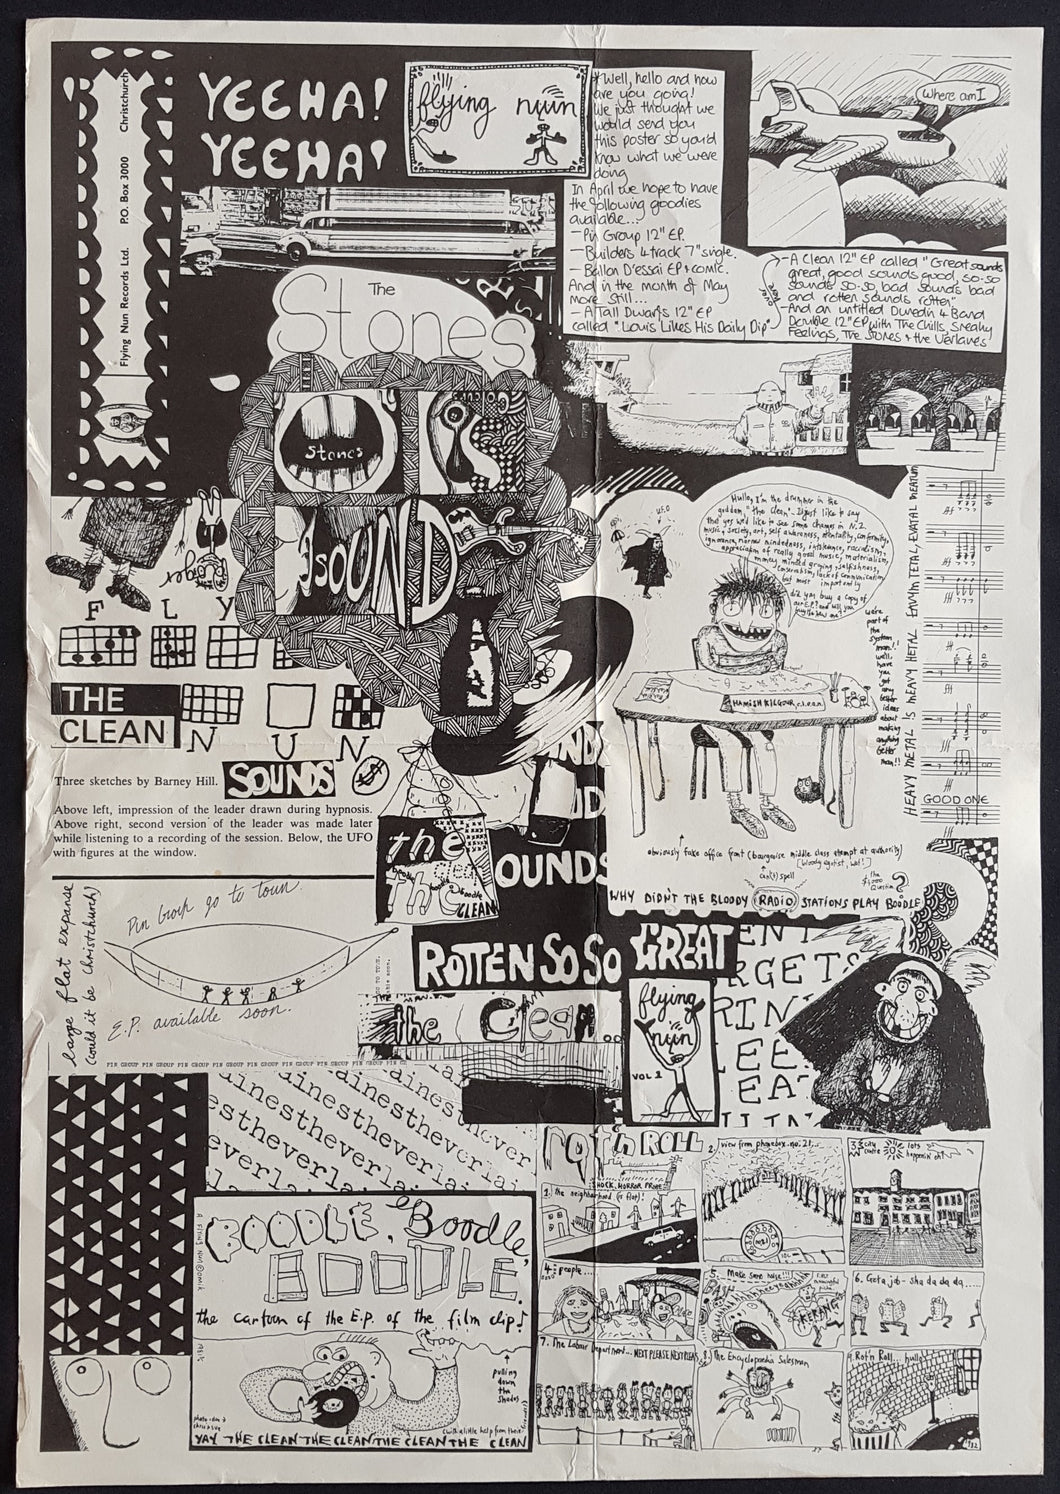 YEEHA!
YEEHA!
flying nun
Flying Nun Records Ltd. P.O. Box 3000 Christchurch
Well, hello and how
are you going!
We just thought we
would send you
this poster so you'd
know what we were
doing
In April we hope to have
the following goodies
available...
- Pin Group 12" EP.
- Builders 4 track 7" single.
- Ballon D'essai EP + comic.
And in the month of May
more still...
- A Tall Dwarfs 12" EP
called "Louis Likes His Daily Dip"
Where am I
- A Clean 12" EP called "Great sounds
great, good sounds good, so-so
sounds so-so, bad sounds bad
and rotten sounds rotten"
- And an untitled Dunedin 4 Band
Double 12" EP with The Chills, Sneaky
Feelings, The Stones + the Verlaines
The
Stones
Stones
SOUND
U.F.O
Hullo, I'm the drummer in the
goddam, "the Clean". I just like to say
that yes we'd like to see some changes in N.Z.
music, society, art, self awareness, mentality, conformity,
ignorance, narrow mindedness, intolerance, racialism,
appreciation of really good music, materialism,
money minded arying, selfishness,
conservatism, lack of communication
but most importantly
did you buy a copy of
our E.P.? and will you
buy the new one?
we're
part of
the
system
man!!
well,
have
you
got
any
better
ideas
about
making
anything
better
man!!
HAMISH KILGOUR c.l.e.a.n.
HEAVY METAL IS HEAVY METAL
GOOD ONE
F L Y
N U N
THE
CLEAN
SOUNDS
Three sketches by Barney Hill.
Above left, impression of the leader drawn during hypnosis.
Above right, second version of the leader was made later
while listening to a recording of the session. Below, the UFO
with figures at the window.
the
CLEAN
OUNDS
obviously fake office front (bourgeoise middle class attempt at authority)
(bloody egotist, wot!)
can(t) spell
the
$1,000
Question
?
WHY DIDN'T THE BLOODY RADIO STATIONS PLAY BOODLE
Pin Group go to town.
large flat expanse
(could it be Christchurch)
E.P. available soon.
PIN GROUP PIN GROUP PIN GROUP PIN GROUP PIN GROUP PIN GROUP PIN GROUP PIN GROUP
ROTTEN SO SO GREAT
the Clean...
flying
nun
VOL 1
ainestheverlai
esttheverla
everlai
BOODLE, Boodle,
BOODLE,
the cartoon of the E.P. of the film clip!
pulling
down
the
shades
YAY THE CLEAN THE CLEAN THE CLEAN THE CLEAN
ROT'n ROLL
SHOCK, HORROR PROBE
1. the neighbourhood (is flat)!
2. view from phonebox no. 21...
city
centre
lots
happenin' eh?
4. people...
5. Make some noise!!!
KERANG
6. Get a job - sha da da da......
7. The Labour Department... NEXT PLEASE NEXT PLEASE
8. The Encyclopaedia Salesman
9. Rot'n Roll... hullo